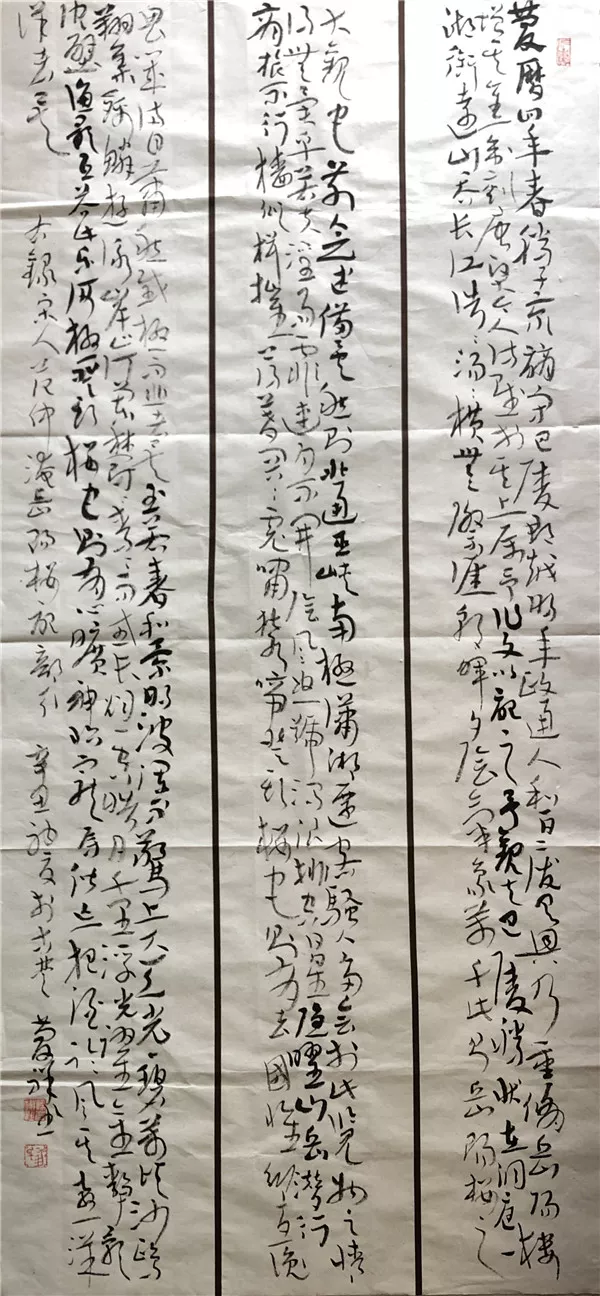 慶曆四年春滕子京謫守巴陵郡越明年政通人和百廢具興乃重修岳陽樓
增其舊制刻唐賢今人詩賦於其上屬予作文以記之予觀夫巴陵勝狀在洞庭一
湖銜遠山吞長江浩々湯々橫無際涯朝暉夕陰氣象萬千此則岳陽樓之
大觀也前人之述備矣然則北通巫峽南極瀟湘遷客騷人多會於此覽物之情
得無異乎若夫淫雨霏連月不開陰風怒號濁浪排空日星隱曜山岳潛行
商旅不行楫摧薄暮冥々虎嘯猿啼登斯樓也則有去國懷鄉憂讒
滿目蕭然感極而悲者矣至若春和景明波瀾不驚上下天光一碧萬頃沙鷗
翔集錦鱗游泳岸芷汀蘭郁々青々而或長烟一空皓月千里浮光躍金靜影
沉璧漁歌互答此樂何極登斯樓也則有心曠神怡寵辱偕忘把酒臨風其喜洋
洋者矣
右錄宋人范仲淹岳陽樓記節引 辛丑初夏於